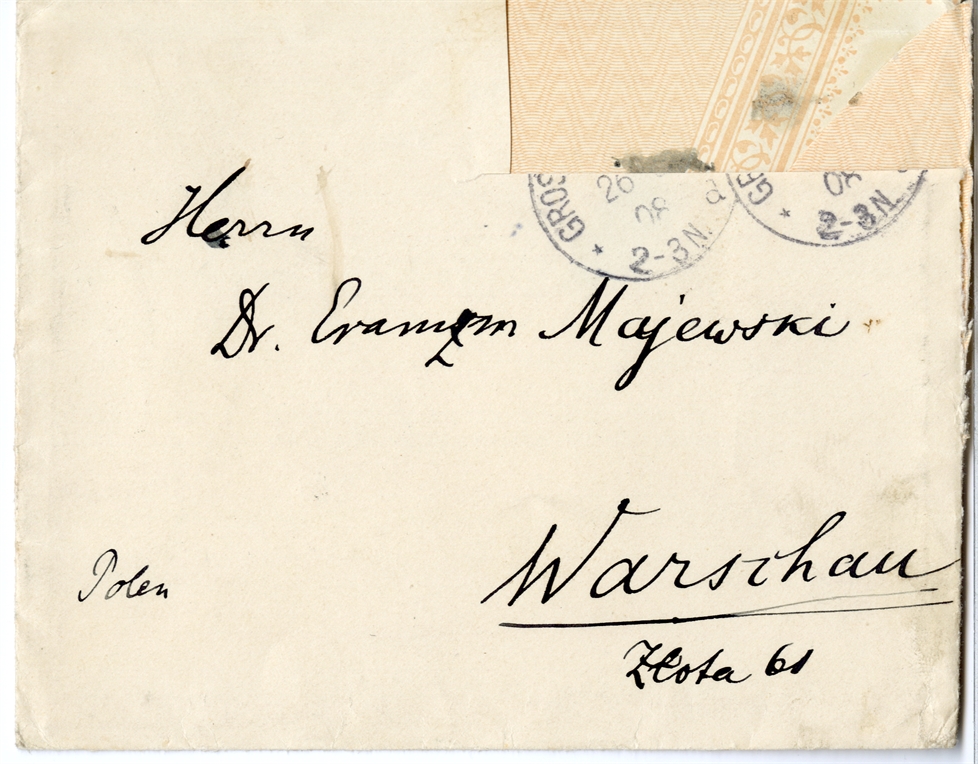 GROS
26
08
2-3N.
d
GR
08
2-3N.
Herrn
Dr. Eramzm Majewski
Warschau
Polen
Złota 61